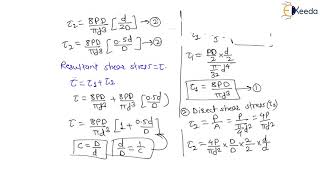 Ekeeda
τ₂ = 8PD/πd³ [d/2D] → ②
τ₂ = 8PD/πd³ [0.5d/D] → ②
Resultant shear stress = τ
τ = τ₁ + τ₂
τ = 8PD/πd³ + 8PD/πd³ [0.5d/D]
τ = 8PD/πd³ [1 + 0.5d/D]
C = D/d
d/D = 1/C
τ₁ = (PD/2 × d/2) / (π/32 d⁴)
τ₁ = 8PD/πd³ → ①
② Direct shear stress (τ₂)
τ₂ = P/A = P/(π/4 d²) = 4P/πd²
τ₂ = 4P/πd² × D/D × 2/2 × d/d